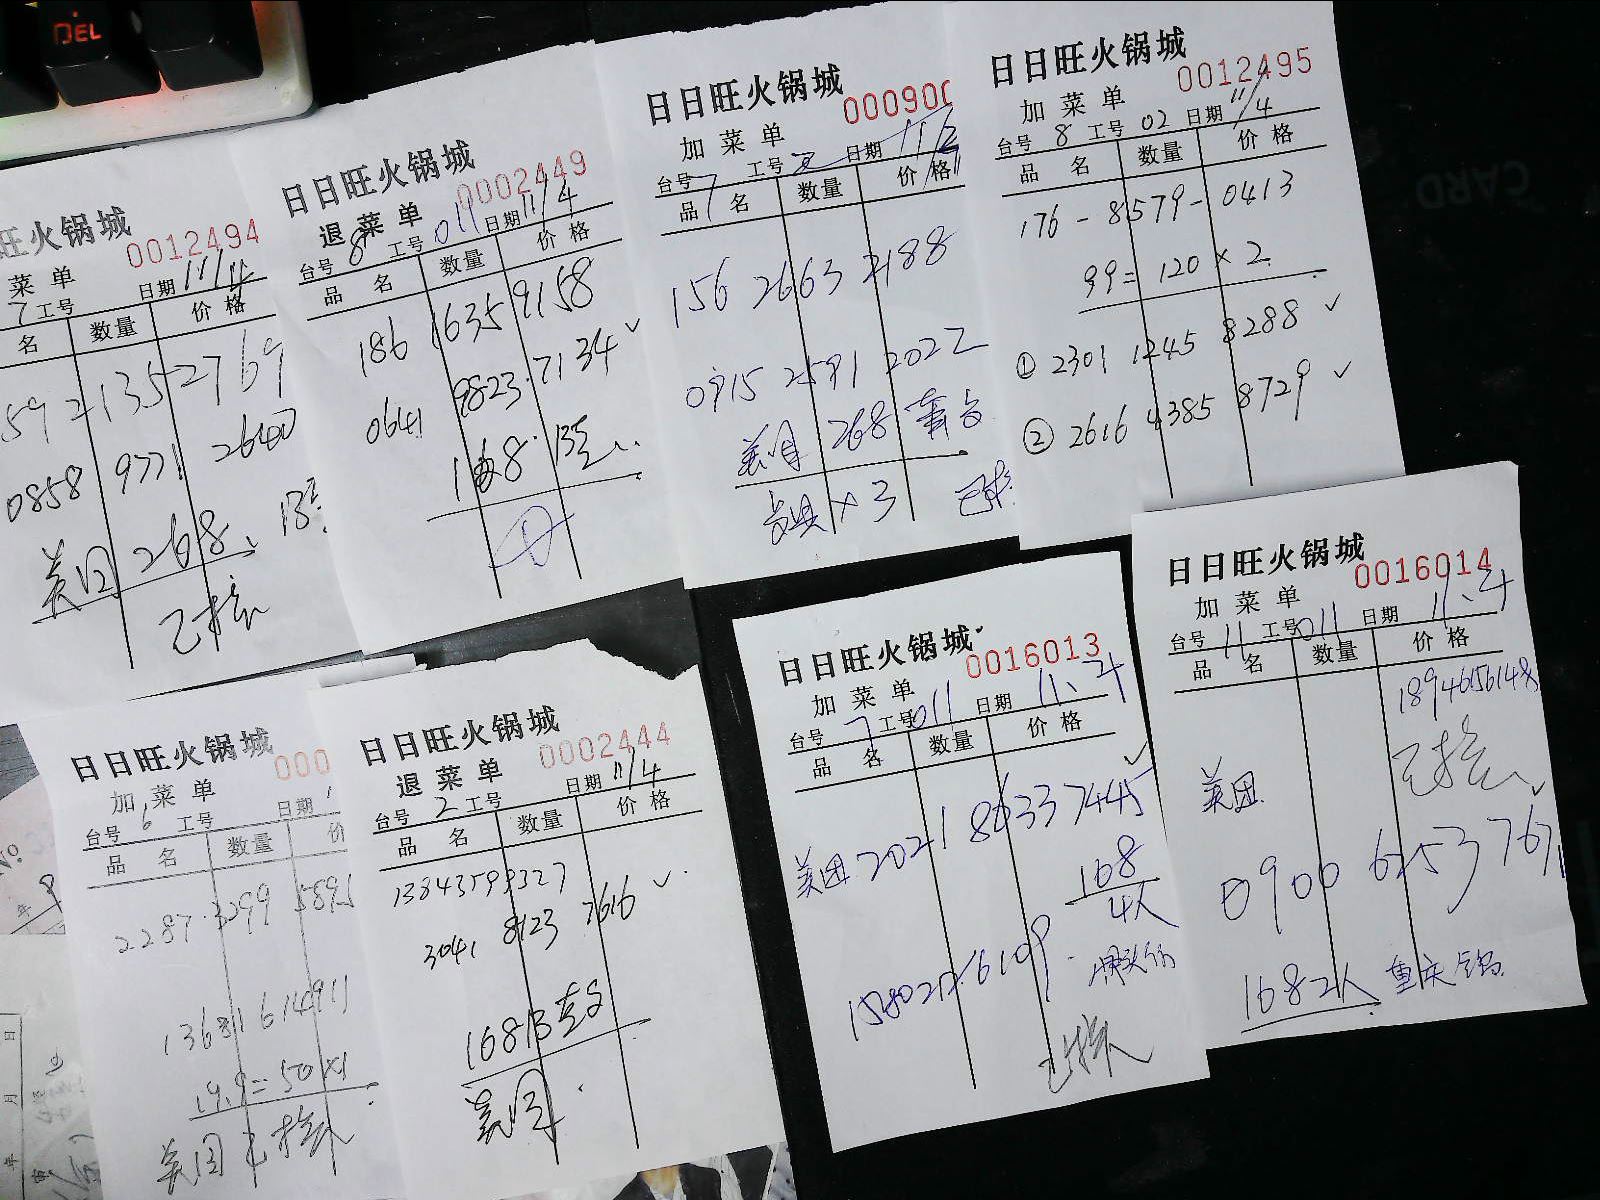 DEL
旺火锅城
0012494
菜单
7 工号 日期 11/4
名 数量 价格
592 135 2769
0858 9771 2640
美团 268
已核
日日旺火锅城
0002449
退菜单
台号 8 工号 011 日期 11/4
品名 数量 价格
186 1635 9158
0641 9823 7134 ✓
168 B套
日日旺火锅城
000900
加菜单
台号 7 工号 日期 11/2
品名 数量 价格
156 2663 2188
0915 2591 2022
美团 268
餐具×3 已核
日日旺火锅城
0012495
加菜单
台号 8 工号 02 日期 11/4
品名 数量 价格
176-8579-0413
99=120×2
① 2301 1245 8288 ✓
② 2616 4385 8729 ✓
日日旺火锅城
000
加菜单
台号 6 工号 日期
品名 数量 价
2287 3299 5895
13681614911
19.9=50×1
美团已核
日日旺火锅城
0002444
退菜单
台号 2 工号 日期 11/4
品名 数量 价格
13843599327
3041 8123 7616 ✓
168B套
美团
日日旺火锅城
0016013
加菜单
台号 7 工号 011 日期 11、4
品名 数量 价格
美团 2021 8633 7445 ✓
168
4人
已核
日日旺火锅城
0016014
加菜单
台号 11 工号 011 日期 11、4
品名 数量 价格
已核
美团
0900 6253 7671 ✓
168 2人 重庆锅
CARD